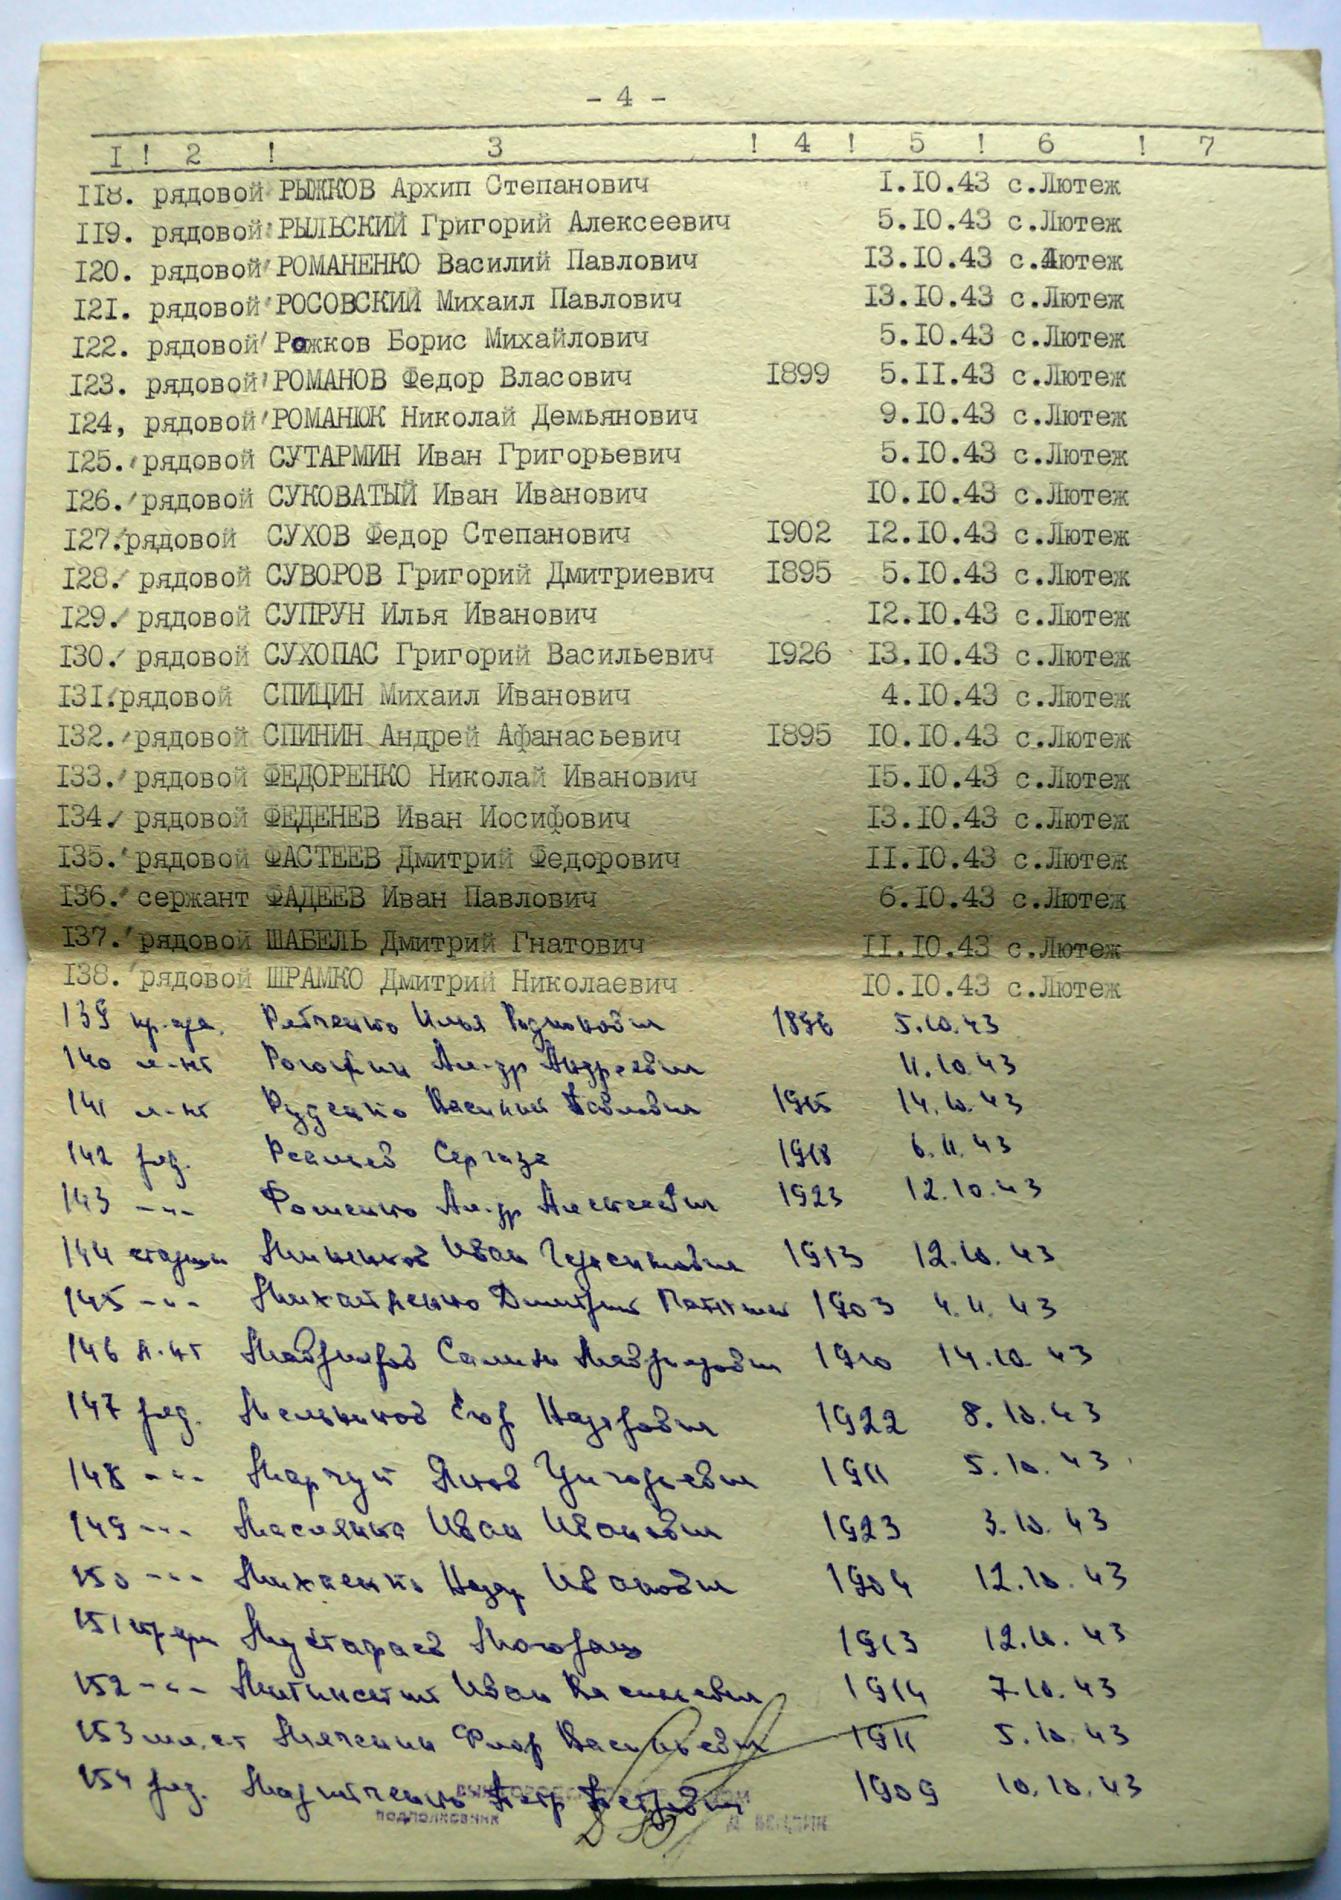 - 4 -
I ! 2 ! 3 ! 4 ! 5 ! 6 ! 7
II8. рядовой РЫЖКОВ Архип Степанович I.IO.43 с.Лютеж
II9. рядовой РЫЛЬСКИЙ Григорий Алексеевич 5.IO.43 с.Лютеж
I20. рядовой РОМАНЕНКО Василий Павлович I3.IO.43 с.Лютеж
I2I. рядовой РОСОВСКИЙ Михаил Павлович I3.IO.43 с.Лютеж
I22. рядовой Рожков Борис Михайлович 5.IO.43 с.Лютеж
I23. рядовой РОМАНОВ Федор Власович I899 5.II.43 с.Лютеж
I24, рядовой РОМАНЮК Николай Демьянович 9.IO.43 с.Лютеж
I25. рядовой СУТАРМИН Иван Григорьевич 5.IO.43 с.Лютеж
I26. рядовой СУКОВАТЫЙ Иван Иванович IO.IO.43 с.Лютеж
I27.рядовой СУХОВ Федор Степанович I902 I2.IO.43 с.Лютеж
I28. рядовой СУВОРОВ Григорий Дмитриевич I895 5.IO.43 с.Лютеж
I29. рядовой СУПРУН Илья Иванович I2.IO.43 с.Лютеж
I30. рядовой СУХОПАС Григорий Васильевич I926 I3.IO.43 с.Лютеж
I3I.рядовой СПИЦИН Михаил Иванович 4.IO.43 с.Лютеж
I32. рядовой СПИНИН Андрей Афанасьевич I895 IO.IO.43 с.Лютеж
I33. рядовой ФЕДОРЕНКО Николай Иванович I5.IO.43 с.Лютеж
I34. рядовой ФЕДЕНЕВ Иван Иосифович I3.IO.43 с.Лютеж
I35. рядовой ФАСТЕЕВ Дмитрий Федорович II.IO.43 с.Лютеж
I36. сержант ФАДЕЕВ Иван Павлович 6.IO.43 с.Лютеж
I37. рядовой ШАБЕЛЬ Дмитрий Гнатович II.IO.43 с.Лютеж
I38. рядовой ШРАМКО Дмитрий Николаевич IO.IO.43 с.Лютеж
139 Илья 5.10.43
140 л-нт Ал-др Андреевич 11.10.43
141 л-нт Руденко Василий Павлович 14.10.43
142 ряд. 6.11.43
143 -"- Фоменко Ал-др Алексеевич 1923 12.10.43
144 Иван 1913 12.10.43
145 -"- Дмитрий 1903 4.11.43
146 л-нт 14.10.43
147 ряд. Мельников 1922 8.10.43
148 -"- Марчук Яков Григорьевич 1911 5.10.43
149 -"- Иван Иванович 1923 3.10.43
150 -"- Назар Иванович 1904 12.10.43
151 Мустафаев 1913 12.10.43
152 -"- Иван Васильевич 1914 7.10.43
153 Васильевич 1911 5.10.43
154 ряд. Петр Петрович 1909 10.10.43
подполковник